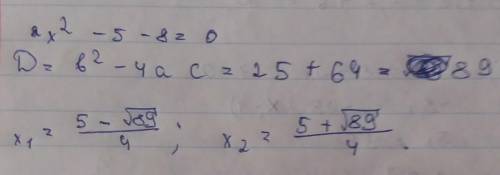 2x² - 5 - 8 = 0
D = b² - 4ac = 25 + 64 = 89
x₁ = (5 - √89)/4 ; x₂ = (5 + √89)/4 .